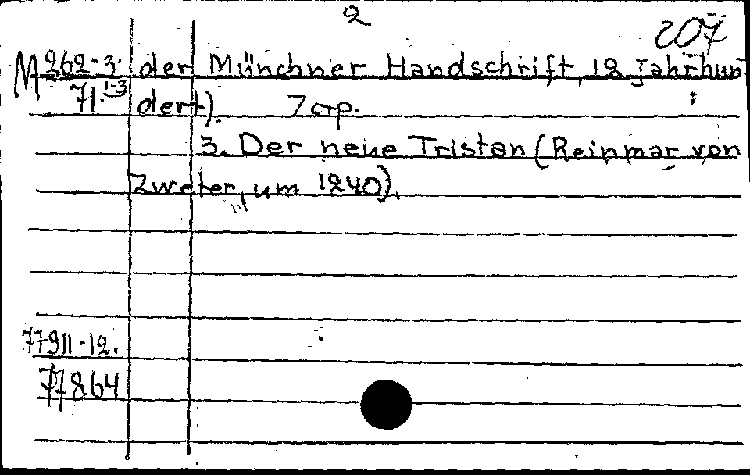 2
207
M 262-3 der Münchner Handschrift, 12 Jahrhun
71.1-3 dert). 7 стр.
3. Der neue Tristan (Reinmar von
Zweter, um 1240).
77911-12.
77864